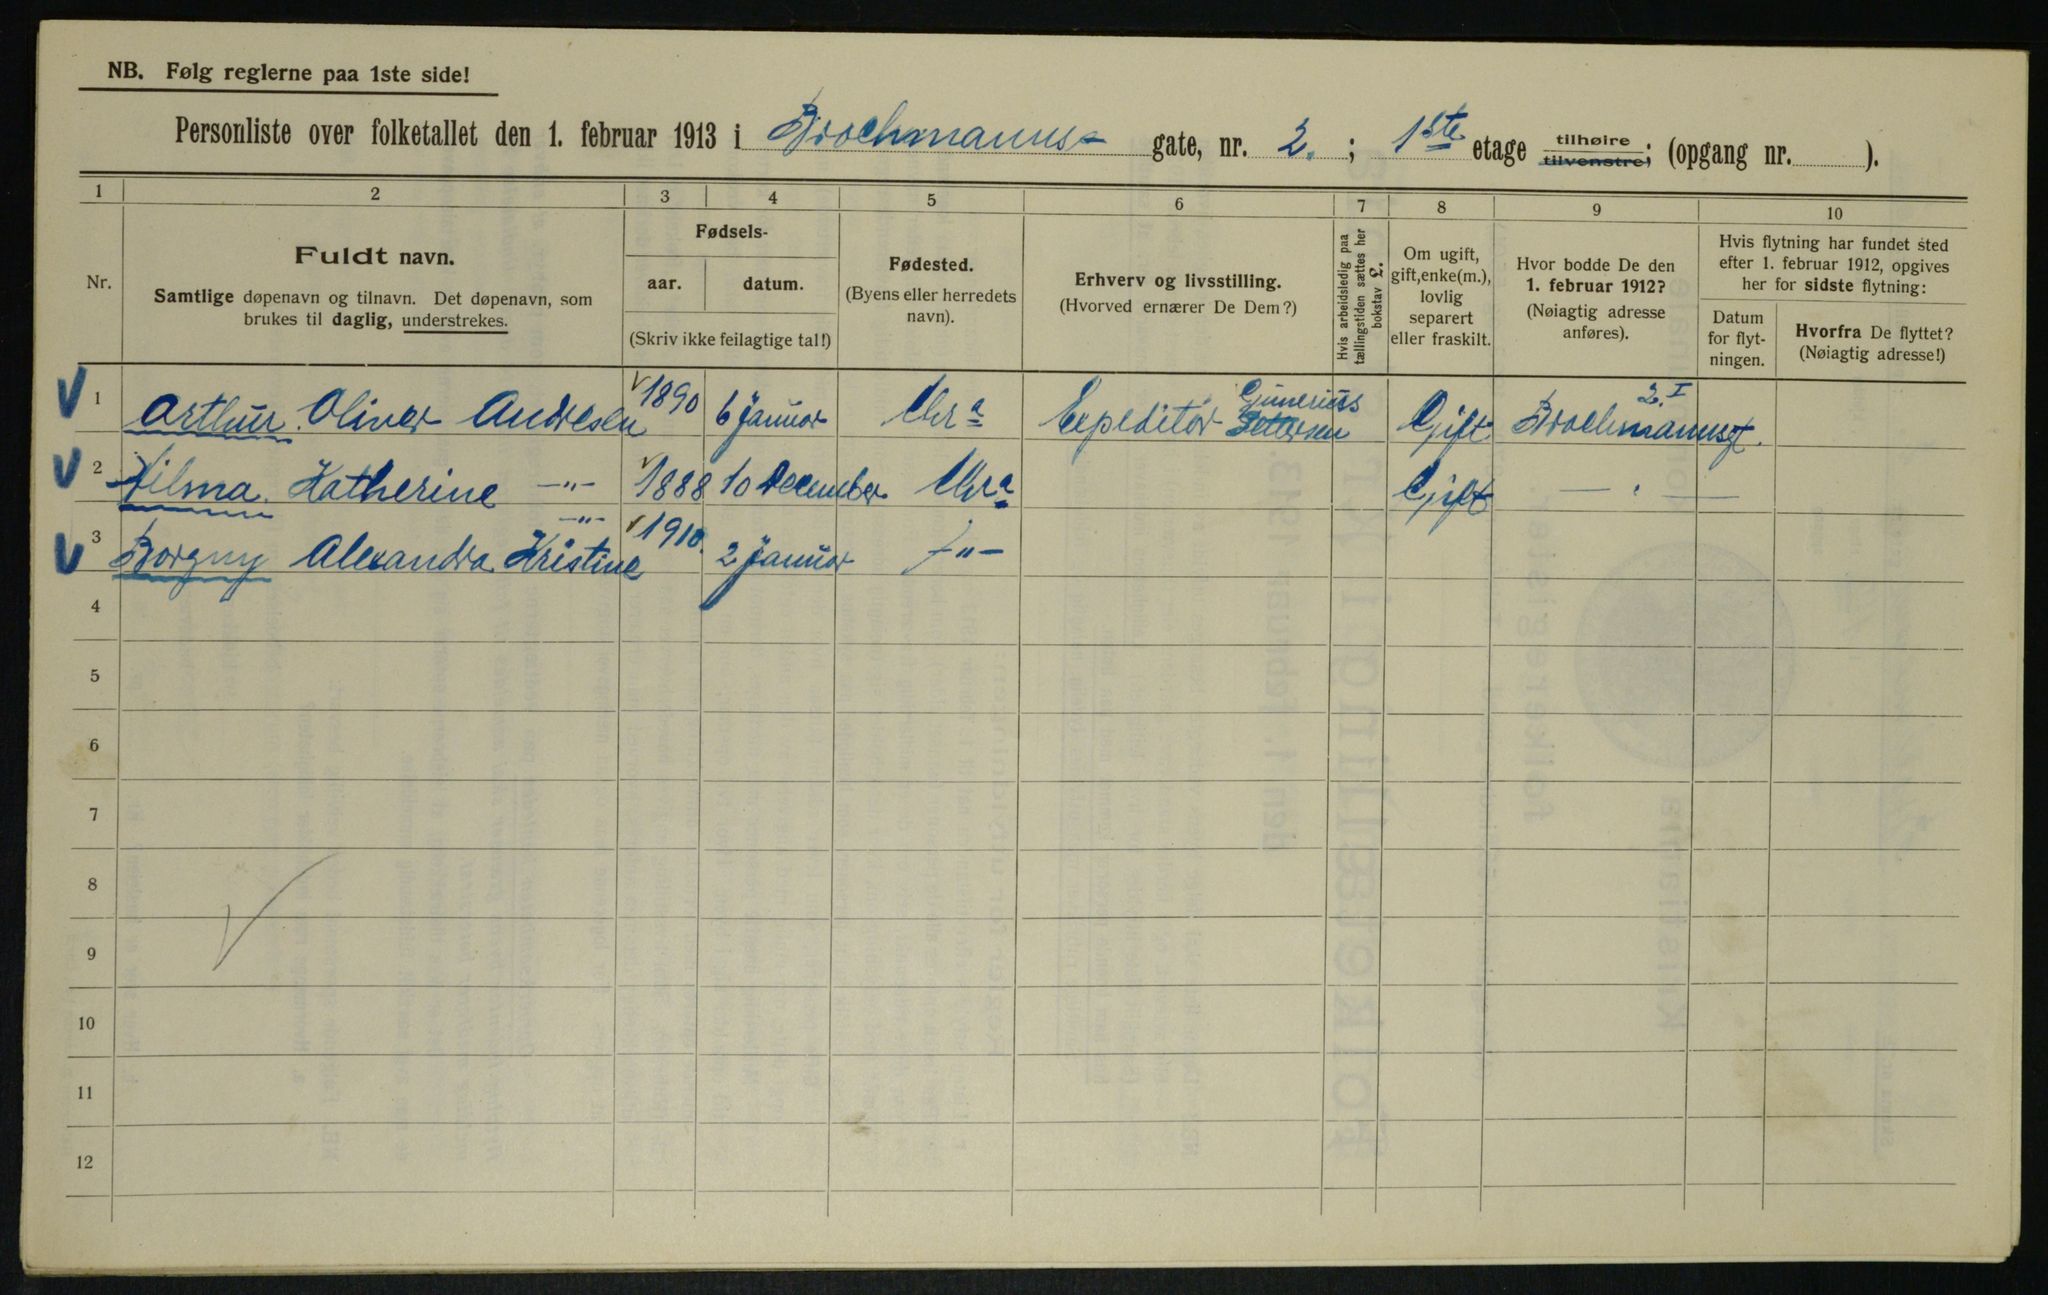 NB. Følg reglerne paa 1ste side!
Personliste over folketallet den 1. februar 1913 i Brochmanns- gate, nr. 2. ; 1ste etage tilhøire. tilvenstre; (opgang nr. ).
1 2 3 4 5 6 7 8 9 10
Nr.
Fuldt navn.
Samtlige døpenavn og tilnavn. Det døpenavn, som
brukes til daglig, understrekes.
Fødsels-
aar. datum.
(Skriv ikke feilagtige tal!)
Fødested.
(Byens eller herredets
navn).
Erhverv og livsstilling.
(Hvorved ernærer De Dem?)
Hvis arbeidsledig paa
tællingstiden sættes her
bokstav L.
Om ugift,
gift, enke(m.),
lovlig
separert
eller fraskilt.
Hvor bodde De den
1. februar 1912?
(Nøiagtig adresse
anføres).
Hvis flytning har fundet sted
efter 1. februar 1912, opgives
her for sidste flytning:
Datum
for flyt-
ningen.
Hvorfra De flyttet?
(Nøiagtig adresse!)
1 Arthur Oliver Andresen 1890 6 Januar Chra Expeditør Gunerius Pettersen Gift Brochmannsgt. 2.I
2 Hilma Katherine —"— 1888 10 December Chra Gift — " —
3 Borgny Alexandra Kristine —"— 1910. 2 Januar —"—
4
5
6
7
8
9
10
11
12